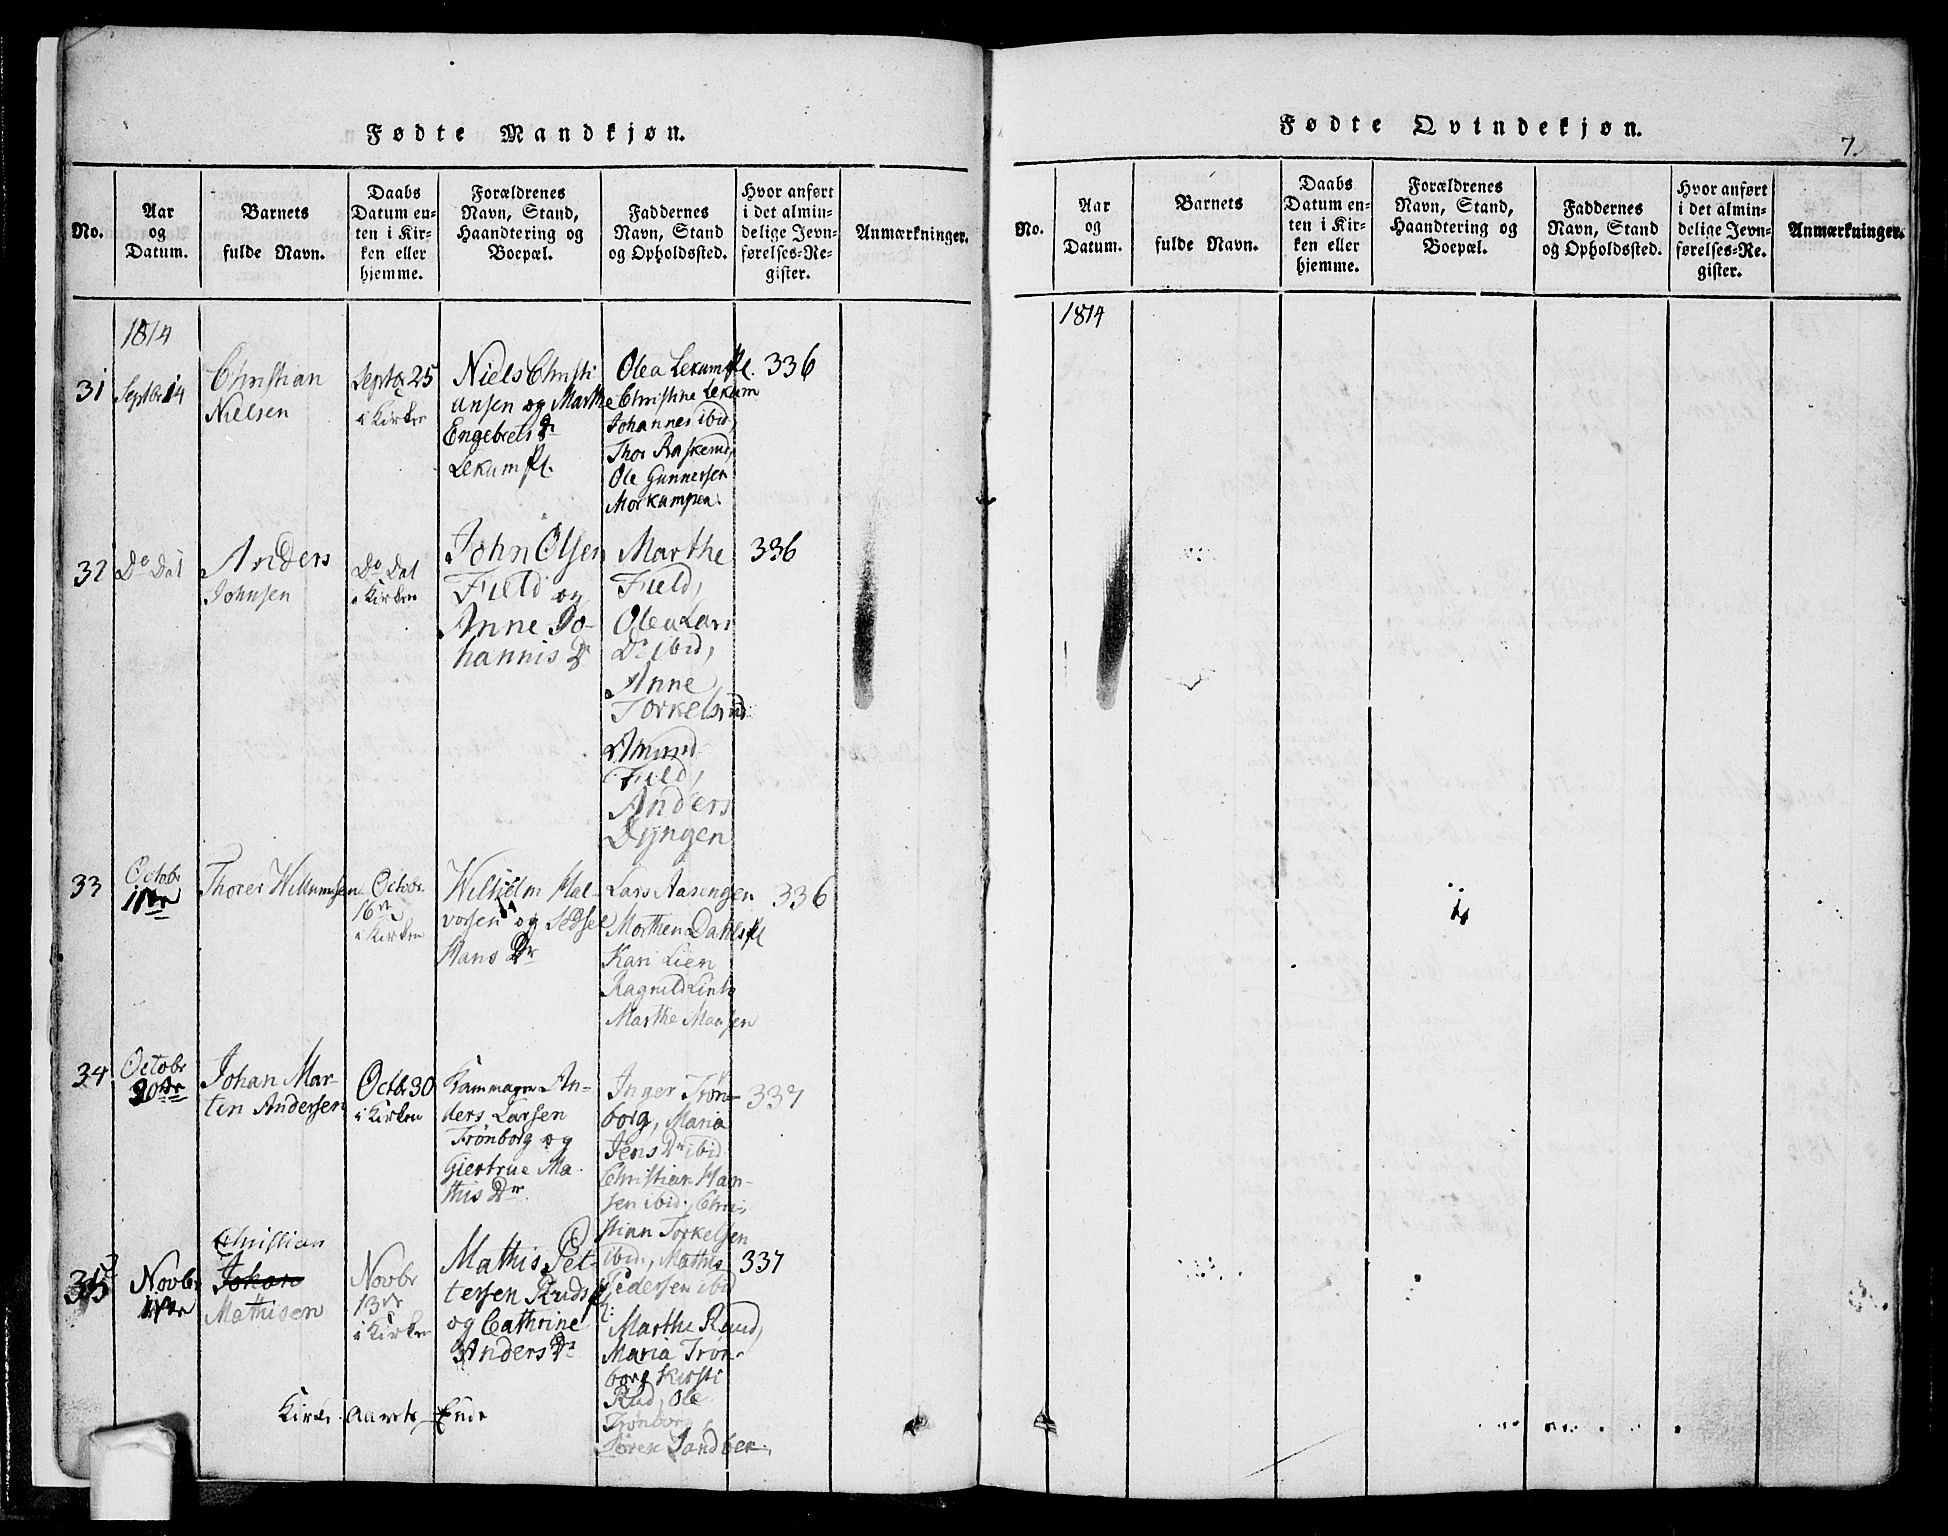 Fødte Mandkjøn.
No.
Aar
og
Datum.
Barnets
fulde Navn.
Daabs
Datum en-
ten i Kir-
ken eller
hjemme.
Forældrenes
Navn, Stand,
Haandtering og
Boepæl.
Faddernes
Navn, Stand
og Opholdssted.
Hvor anført
i det almin-
delige Jevn-
førelses-Re-
gister.
Anmærkninger.
1814
31
Septbr 14
Christian
Nielsen
Septbr 25
i Kirken
Niels Christi
ansen og Marthe
Engebrets Dr
Lekum Pl.
Olea Lekum Pl.
Christine Lekum
Johannes ibid,
Thor
Ole Gunnersen
Morkampen.
336
32
Do Dat
Anders
Johnsen
Do Dat
i Kirken
John Olsen
Field og
Anne Jo-
hannis Dr
Marthe
Field,
Olea Lars
Dr ibid,
Anne
Torkelsrud
Amund
Field,
Anders
Dyngen
336
33
Octobr
11te
Thorer Willumsen
Octobr
16de
i Kirken
Wilhelm Hal-
vorsen og Sidsel
Hans Dr
Lars Aasengen
Morthen Dahls Pl
Kari Lien
Ragnild
Marthe Moosen
336
34
Octobr
20de
Johan Mar-
ten Andersen
Octbr 30
i Kirken
Kammager An-
ders Larsen
Trönborg og
Giertrue Ma-
this Dr
Inger Trön-
borg, Maria
Jens Dr ibid
Christian Han-
sen ibid, Chri-
stian Torkelsen
ibid, Mathis
Pedersen ibid
337
35
Novbr
Christian
Johan
Mathisen
Novbr
13de
i Kirken
Mathis Pet-
tersen Ruds Pl:
og Cathrine
Anders Dr
Marthe Ruud,
Maria Trön-
borg Kirsti
Rud, Ole
Trönborg
Sören Sandber
337
Kirke Aarets Ende
Fødte Qvindekjøn.
7.
No.
Aar
og
Datum.
Barnets
fulde Navn.
Daabs
Datum en-
ten i Kir-
ken eller
hjemme.
Forældrenes
Navn, Stand,
Haandtering og
Boepæl.
Faddernes
Navn, Stand
og Opholdssted.
Hvor anført
i det almin-
delige Jevn-
førelses-Re-
gister.
Anmærkninger.
1814